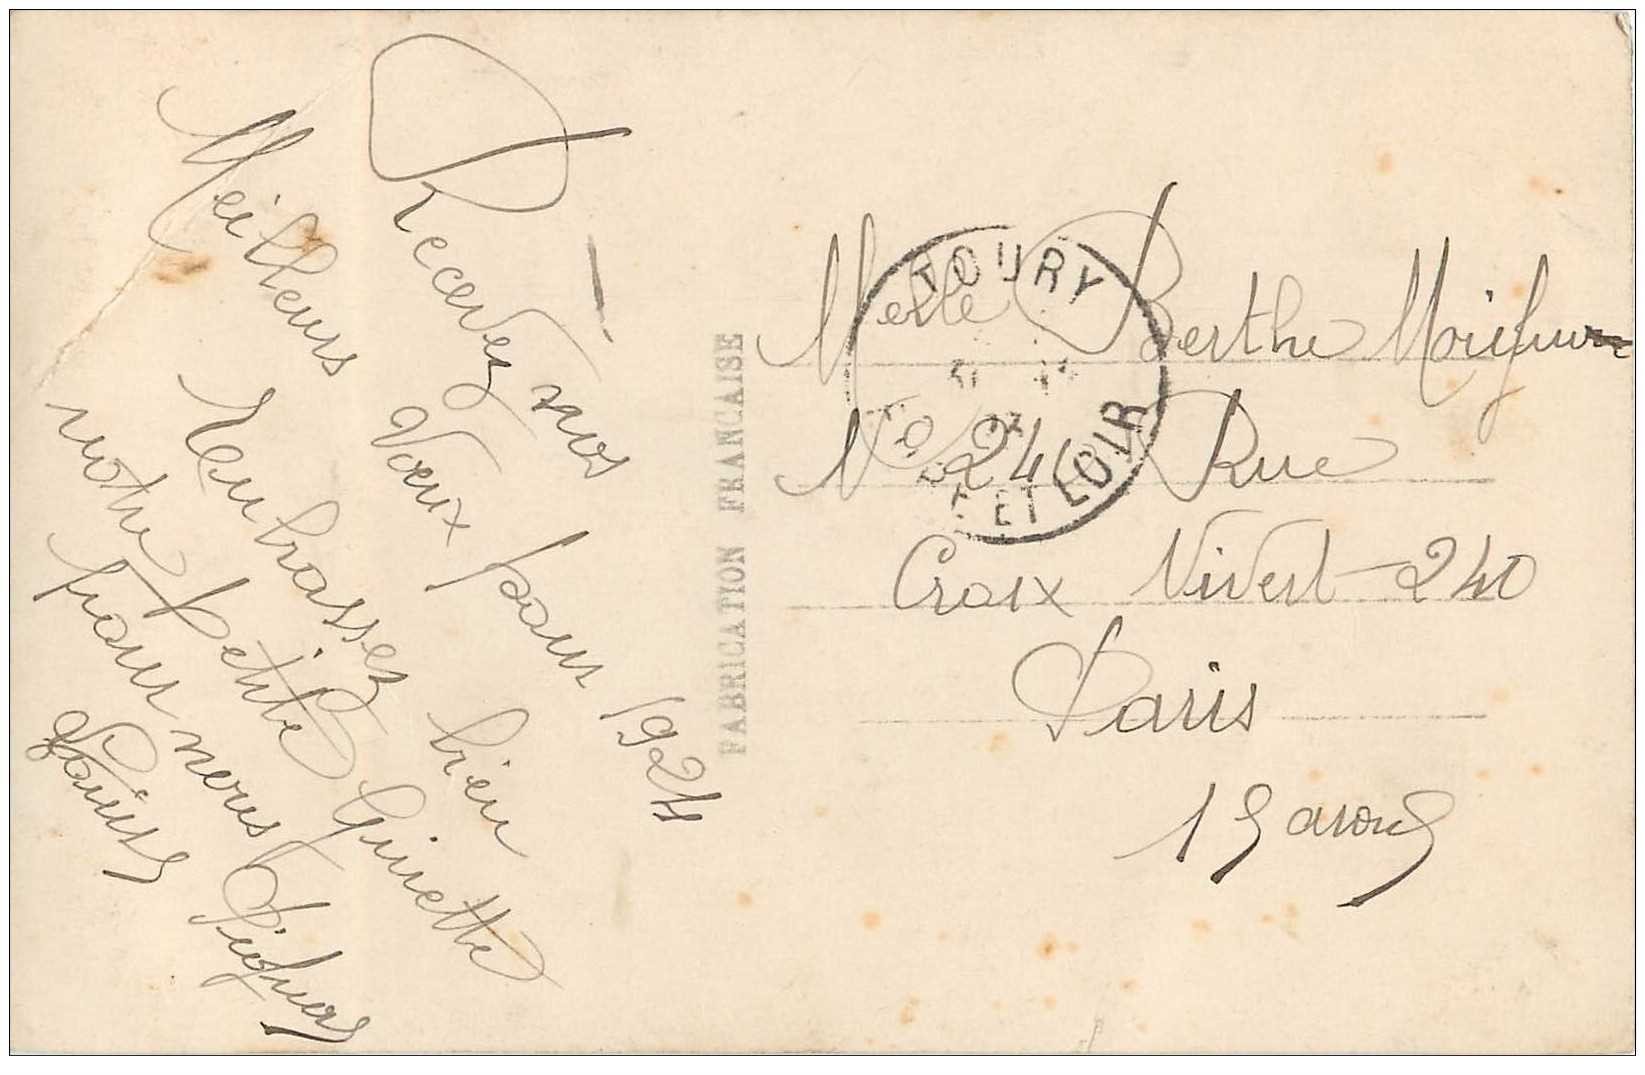 Recevez nos
Meilheurs Voeux pour 1924
Rembrassez bien
notre petite Ginette
pour nous
FABRICATION FRANCAISE
TOURY
31
ET LOIR
Merlle Berthe
No 24 Rue
Croix Nivert - 240
Paris
15 arond